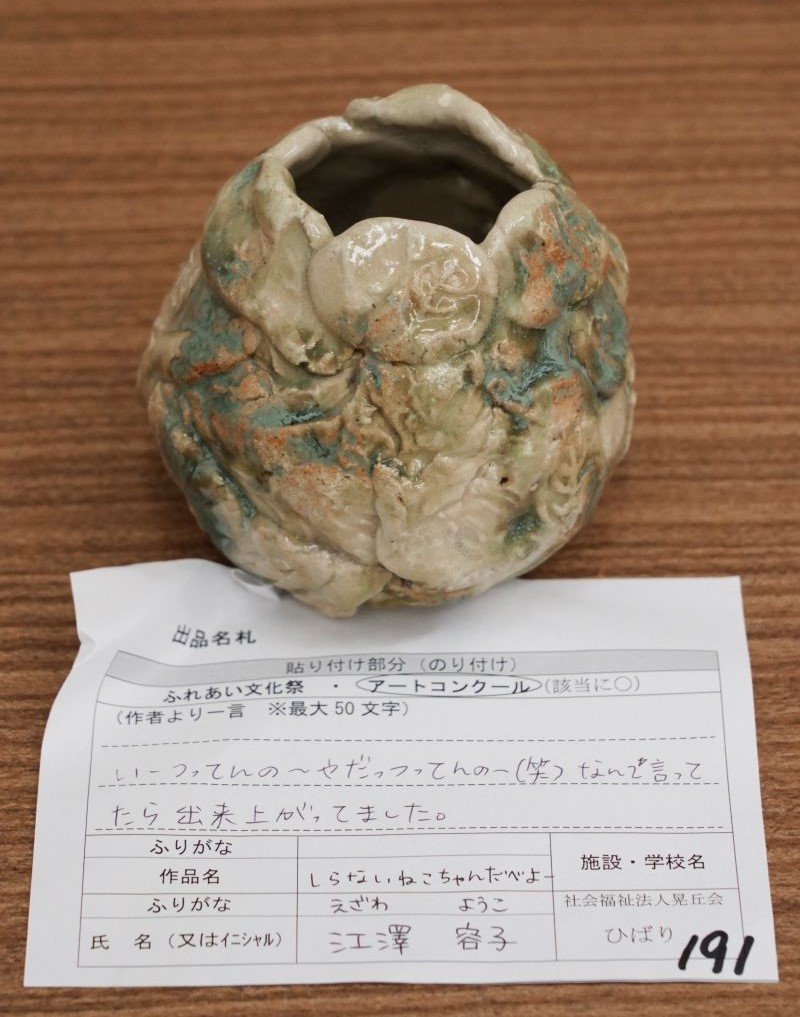 出品名札
貼り付け部分（のり付け）
ふれあい文化祭 ・ アートコンクール（該当に○）
（作者より一言 ※最大50文字）
い一つってんの〜やだっつってんの〜(笑)なんて言って
たら出来上がってました。
ふりがな
作品名 しらないねこちゃんだべよー
施設・学校名
ふりがな えざわ ようこ
社会福祉法人晃丘会
氏 名（又はイニシャル） 江澤 容子
ひばり
191